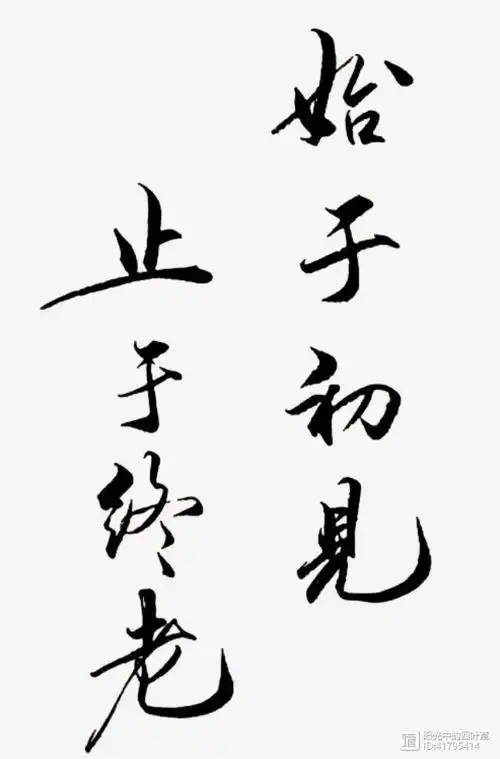 始于初見
止于终老
阳光中的四叶草
ID:41795414